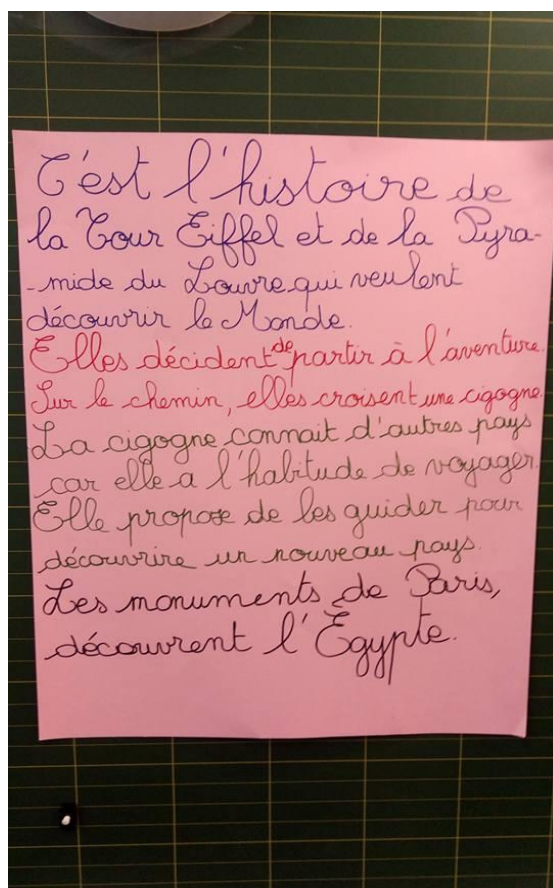 C'est l'histoire de
la Tour Eiffel et de la Pyra-
-mide du Louvre qui veulent
découvrir le Monde.
Elles décident de partir à l'aventure.
Sur le chemin, elles croisent une cigogne.
La cigogne connait d'autres pays
car elle a l'habitude de voyager.
Elle propose de les guider pour
découvrire un nouveau pays.
Les monuments de Paris,
découvrent l'Égypte.